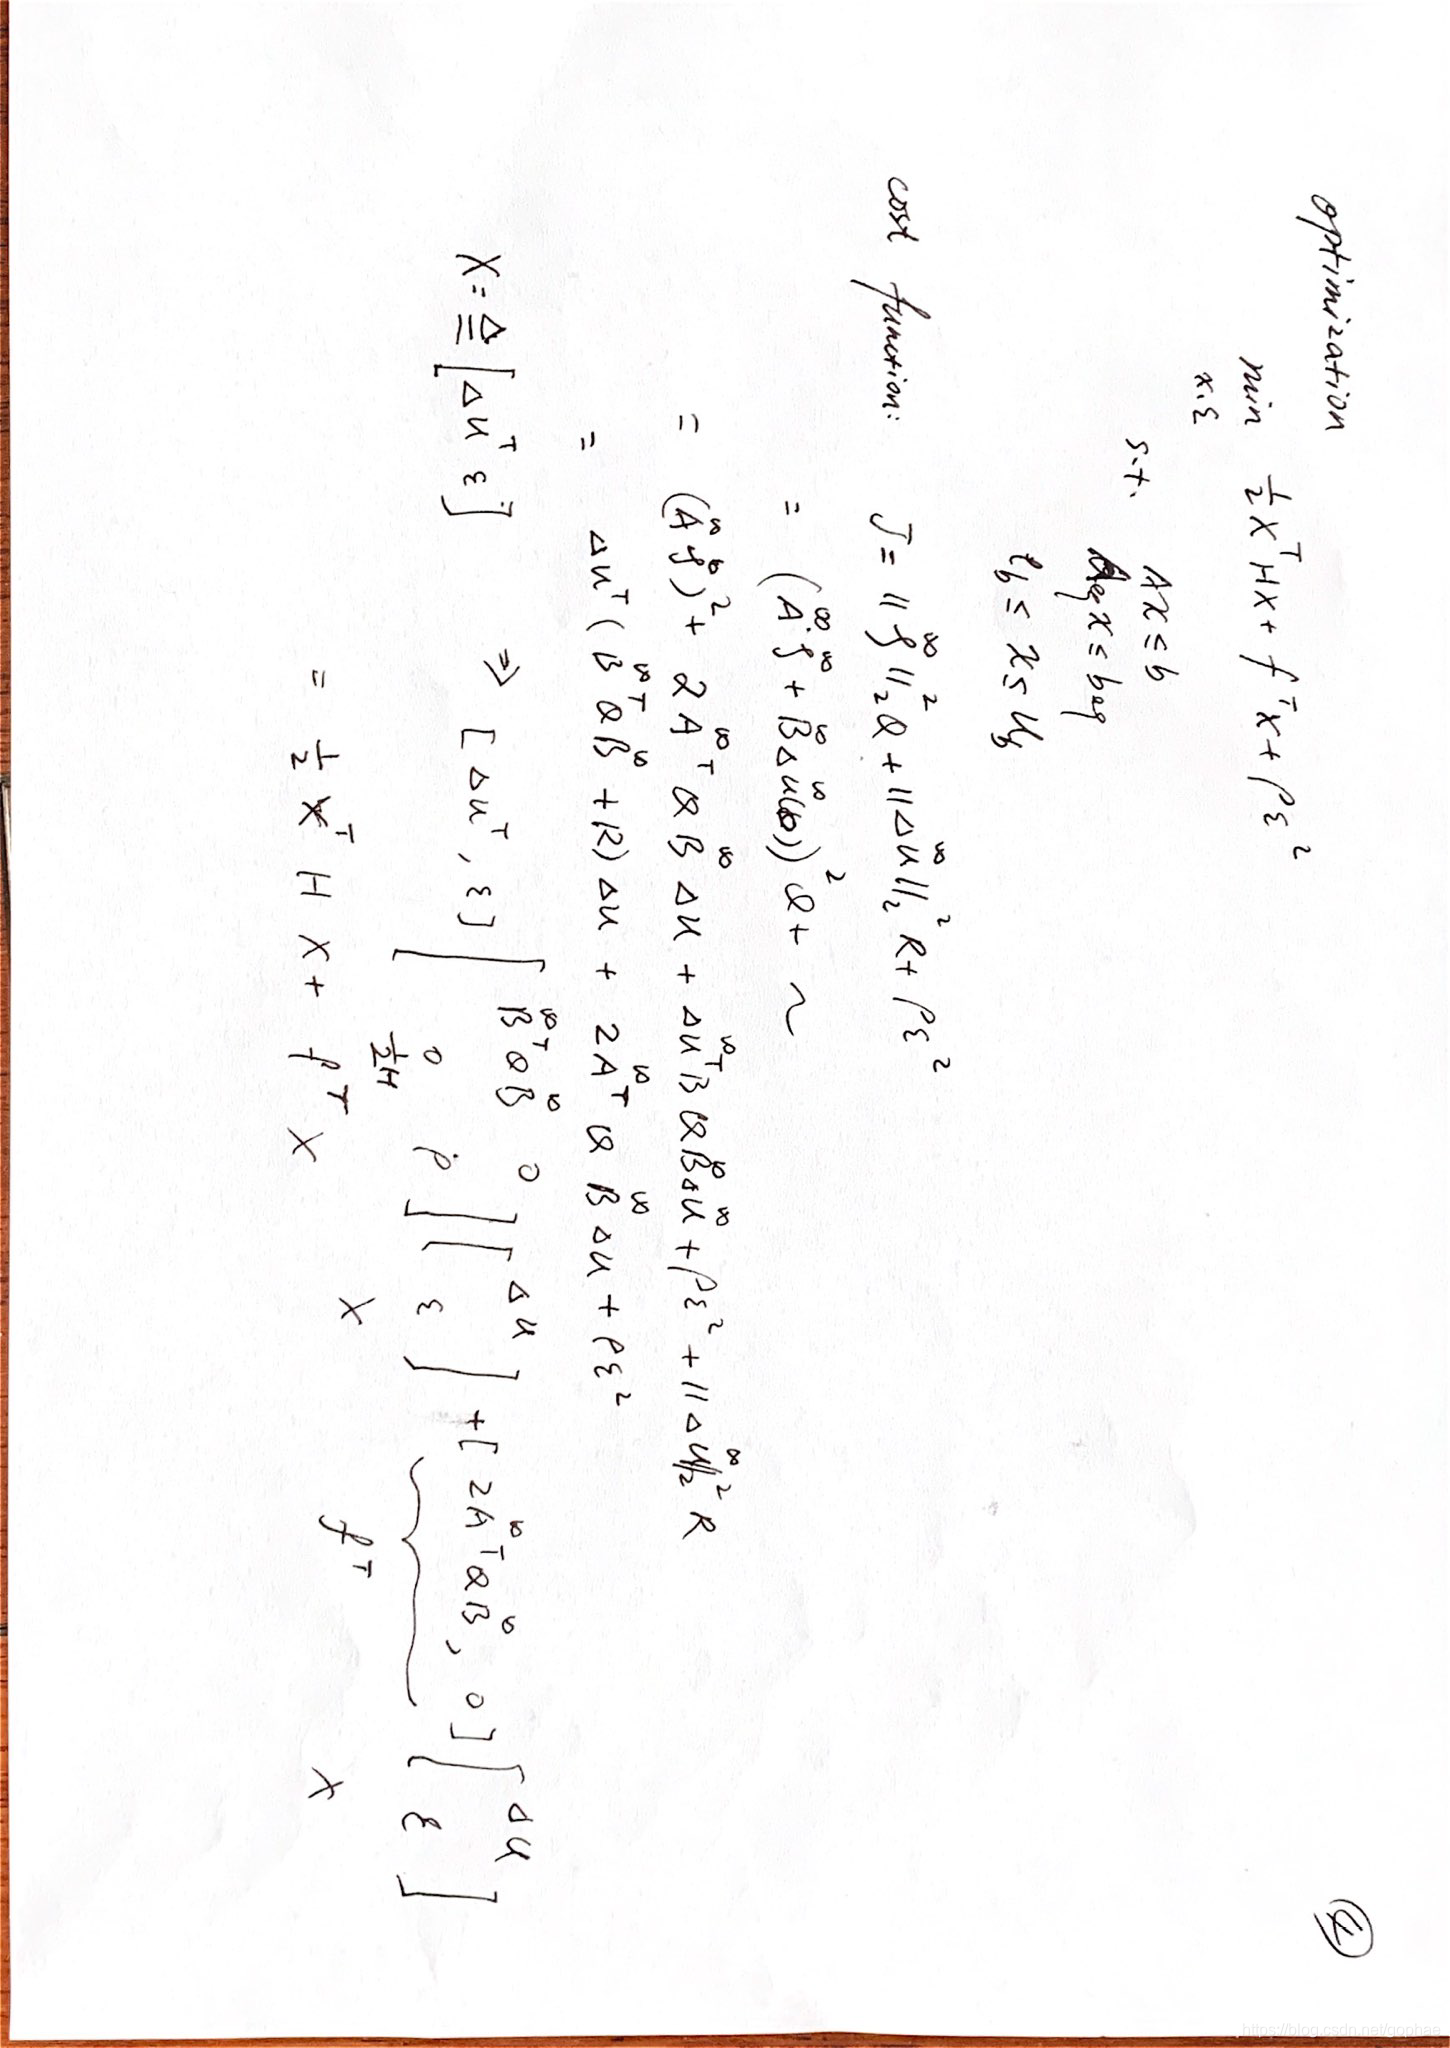 ④
optimization
min ½ x^T H x + f^T x + ρε²
x.ε
s.t. Ax ≤ b
Aeq x = beq
lb ≤ x ≤ Ub
cost function: J = ||ξ^∞||₂² Q + ||Δu^∞||₂² R + ρε²
= (A^∞ ξ^∞ + B^∞ Δu^∞(k))² Q + ~
= (A^∞ ξ^∞)² + 2A^∞T Q B^∞ Δu + Δu^∞T B Q B^∞ Δu^∞ + ρε² + ||Δu^∞||₂² R
= Δu^T (B^∞T Q B^∞ + R) Δu + 2A^∞T Q B^∞ Δu + ρε²
X = ≜ [Δu^T ε] ⇒ [Δu^T, ε] [B^∞T Q B^∞ 0
0 ρ] [Δu
ε] + [2A^∞T Q B^∞, 0] [Δu
ε]
½H X f^T X
= ½ X^T H X + f^T X
https://blog.csdn.net/gophae